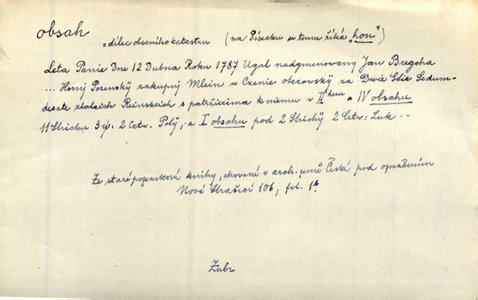 obsah
= dílec obecního katastru (na Písecku se tomu říká "hon")
Leta Panie Dne 12 Dubna Roku 1787 Ugal nadgmenowany Jan
... Hory Pozunsky zakupny Mlein w Czenie za Dwie Stie Sedum-
desate zlatech Reinskeich s patržicima k niemu v II hem a IV obsahu
11 Strichu 3 2 Cztw. Polÿ, a I obsahu pod 2 Strichÿ 2 Cztw: Luk --
Ze staré pozemkové knihy, chované v arch. země České pod označením
Nové Strašecí 106, fol. 1b
Zubr